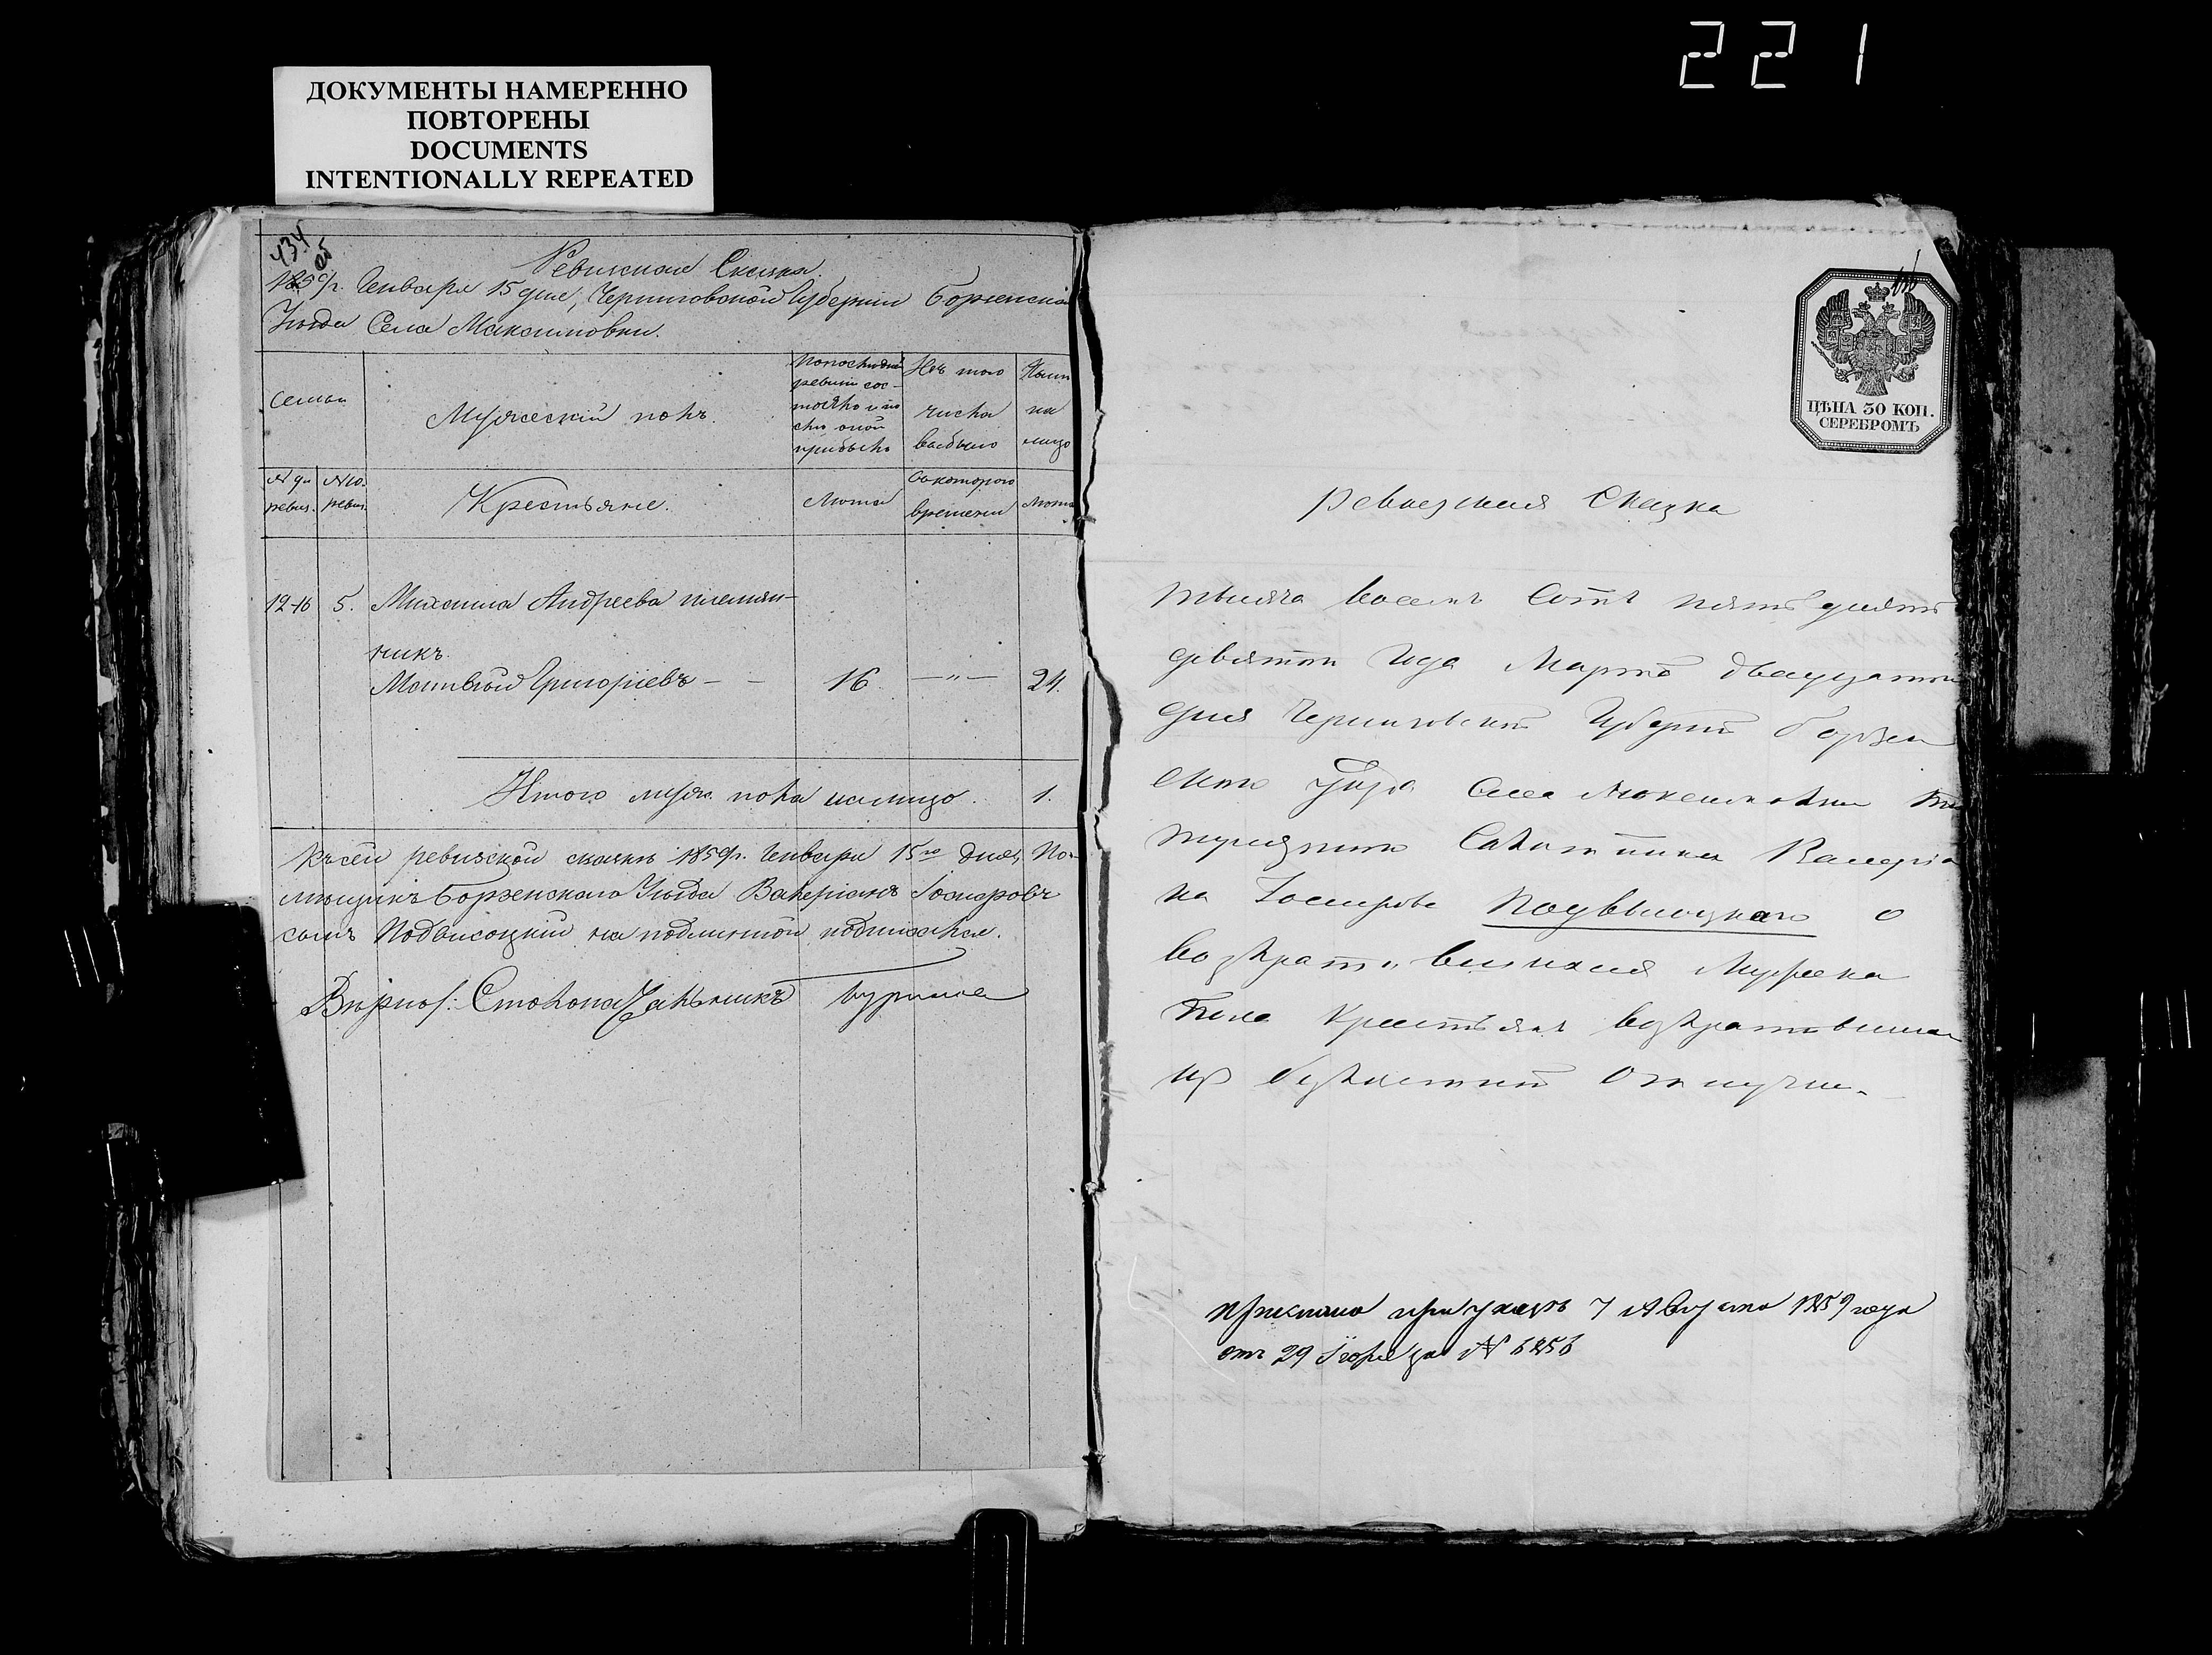 221
ДОКУМЕНТЫ НАМЕРЕННО
ПОВТОРЕНЫ
DOCUMENTS
INTENTIONALLY REPEATED
434
об
Ревизская Сказка.
1859 г. Генваря 15 дня, Черниговской Губернии Борзенскаго
Уѣзда Села Максимовки.
Семьи
Мужескій полъ.
По последней
ревизіи сос-
тояло и по
слѣ оной
прибыло
Изъ того
числа
выбыло
Нынѣ
на
лицо
№ ревиз.
№ ревиз.
Крестьяне.
Лѣта
Съ котораго
времени
Лѣта
12-16 5. Михаила Андреева племян-
никъ
Матвѣй Григоріевъ - - 16. —"— 24.
Итого муж. пола налицо. 1.
Къ сей ревизской сказкѣ 1859 г. Генваря 15го дня, По-
мѣщикъ Борзенскаго Уѣзда Валеріанъ Іосифовъ
сынъ Подвисоцкій на подлинной подписался.
Вѣрно: Столоначальникъ
ЦѢНА 30 КОП.
СЕРЕБРОМЪ
Ревизская Сказка
тысяча восемь сотъ пятьдесятъ
девятого года Марта двадцатого
дня Черниговской Губерніи Борзен
ского Уезда Села Максимовки
Валеріа
на Подвысоцкаго о
Мужеска
пола Крестьянъ возвратившихся
изъ отлучки.
при указѣ 7 Августа 1859 года
отъ 29 Іюля за № 6856